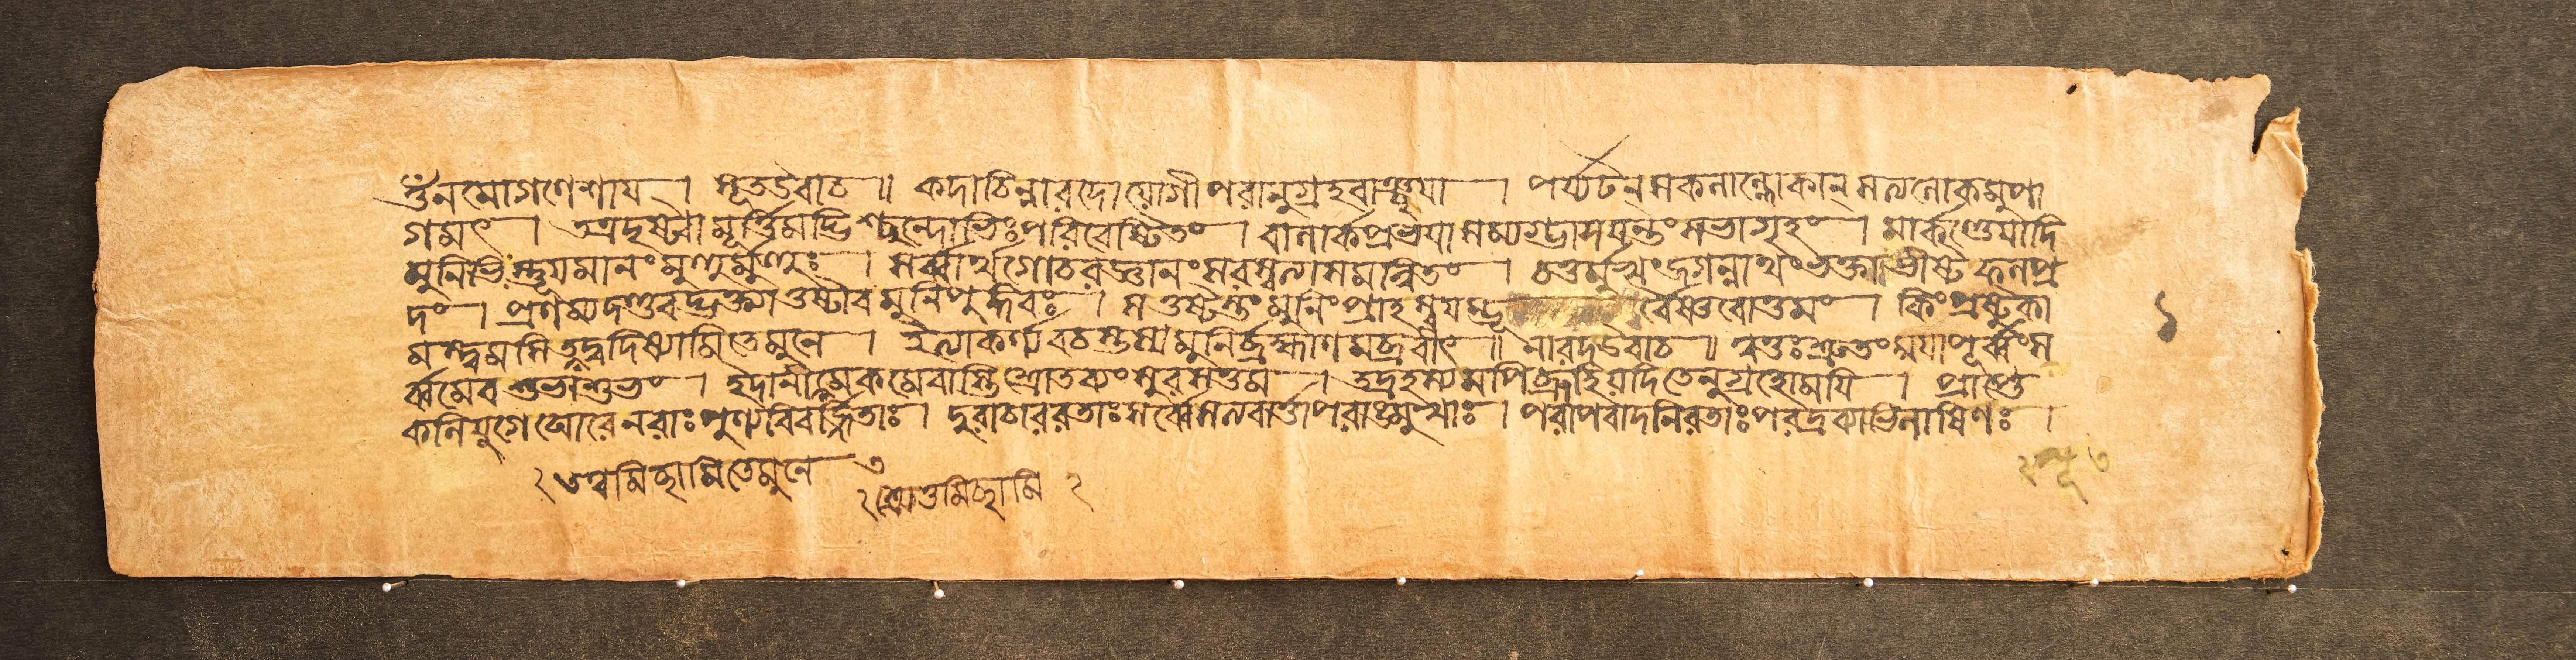 ওঁ নমো গণেশায । সূত উবাচ ॥ কদাচিন্নারদো যোগী পরানুগ্রহবাঞ্ছযা । পর্য্যটন্ সকলাল্লোকান্ সত্যলোকমুপা
গমৎ । তত্র দৃষ্ট্বা মূর্ত্তিমদ্ভিশ্ছন্দোভিঃ পরিবেষ্টিতং । বালার্কপ্রভযা সম্যগ্ভাসযন্তং সভাগৃহং । মার্কণ্ডেযাদি
মুনিভিঃ স্তূযমানং মুহুর্মুহুঃ । সর্ব্বার্থগোচরজ্ঞানং সরস্বত্যাসমান্বিতং । চতুর্মুখং জগন্নাথং ভক্তাভীষ্টফলপ্র
দং । প্রণম্য দণ্ডবদ্ভক্ত্যা তুষ্টাব মুনিপুঙ্গবঃ । সন্তুষ্টস্তং মুনিং প্রাহ স্বযম্ভূ র্বৈষ্ণবোত্তমং । কিং প্রষ্টুকা
মস্ত্বমসি তদ্বদিষ্যামি তে মুনে । ইত্যাকর্ণ্য বচস্তস্য মুনির্ব্রহ্মাণমব্রবীৎ ॥ নারদ উবাচ ॥ ত্বত্তঃ শ্রুতং মযা পূর্ব্বং স
র্ব্বমেব শুভাশুভং । ইদানীমেকমেবাস্তি শ্রোতব্যং সুরসত্তম । তদ্রহস্যমপি ব্রূহি যদি তেনুগ্রহো মযি । প্রাপ্তে
কলিযুগে ঘোরে নরাঃ পুণ্যবিবর্জ্জিতাঃ । দুরাচাররতাঃ সর্ব্বে সত্যবার্ত্তাপরাঙ্মুখাঃ । পরাপবাদনিরতাঃ পরদ্রব্যাভিলাষিণঃ ।
মিচ্ছামি তে মুনে
শ্রোতুমিচ্ছামি ২